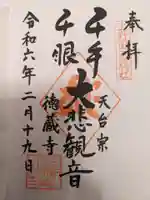 奉拝
天台宗
千手
大悲観音
千眼
徳蔵寺
令和六年二月十九日